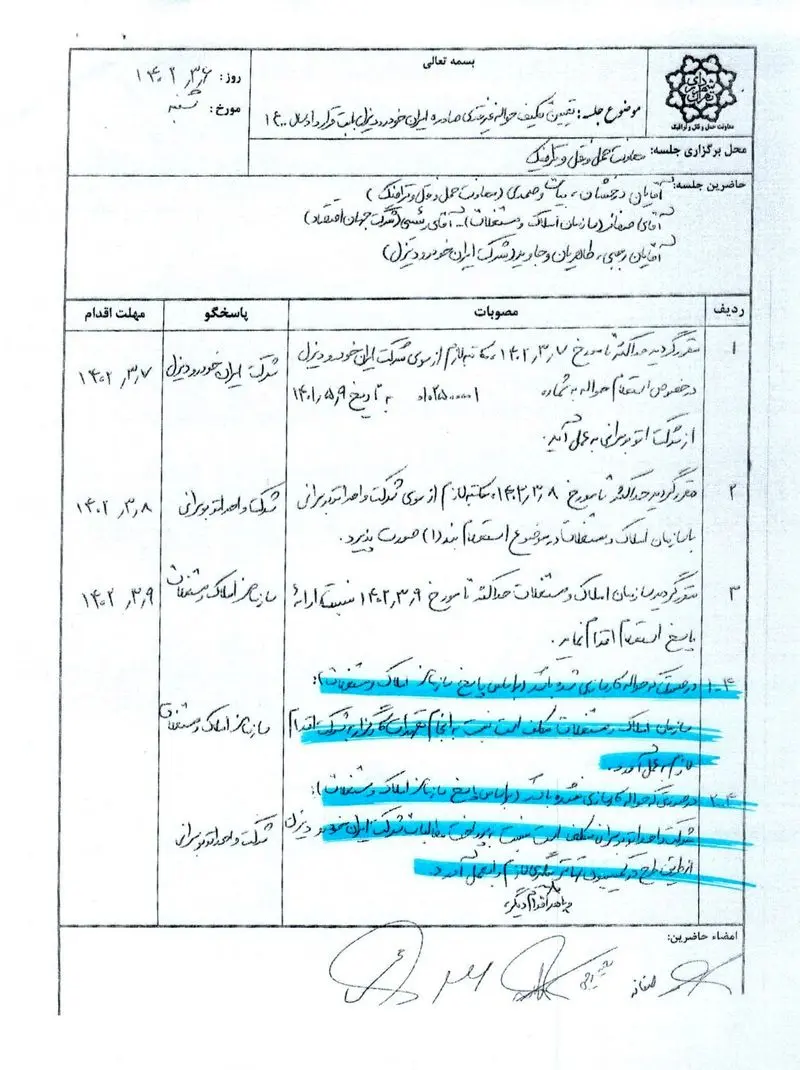 بسمه تعالی
شهرداری تهران
معاونت حمل و نقل و ترافیک
موضوع جلسه: تعیین تکلیف حواله غیرنقدی صادره ایران خودرو دیزل بابت قرارداد سال ۱۴۰۰
روز:
مورخ: شنبه
محل برگزاری جلسه: معاونت حمل و نقل و ترافیک
حاضرین جلسه: آقایان درخشان، بیات و صمدی (معاونت حمل و نقل و ترافیک)
آقای صفائر (سازمان املاک و مستغلات) - آقای (شرکت جهان اقتصاد)
آقایان رجبی، طاهریان و جاوید (شرکت ایران خودرو دیزل)
ردیف مصوبات پاسخگو مهلت اقدام
۱ مقرر گردید حداکثر تا مورخ ۱۴۰۲/۳/۷ مکاتبه لازم از سوی شرکت ایران خودرو دیزل شرکت ایران خودرو دیزل ۱۴۰۲/۳/۷
در خصوص استعلام حواله به شماره به تاریخ ۱۴۰۱/۵/۹
از شرکت اتوبوسرانی به عمل آید.
۲ مقرر گردید حداکثر تا مورخ ۱۴۰۲/۳/۸ مکاتبه لازم از سوی شرکت واحد اتوبوسرانی شرکت واحد اتوبوسرانی ۱۴۰۲/۳/۸
با سازمان املاک و مستغلات در موضوع استعلام بند (۱) صورت پذیرد.
۳ مقرر گردید سازمان املاک و مستغلات حداکثر تا مورخ ۱۴۰۲/۳/۹ نسبت به ارائه سازمان املاک و مستغلات ۱۴۰۲/۳/۹
پاسخ استعلام اقدام نماید.
۴-۱ در صورتی که حواله کارسازی شده باشد (براساس پاسخ سازمان املاک و مستغلات):
سازمان املاک و مستغلات مکلف است نسبت به انجام تعهدات کارگزار به شرکت اقدام سازمان املاک و مستغلات
لازم به عمل آورد.
۴-۲ در صورتی که حواله کارسازی نشده باشد (براساس پاسخ سازمان املاک و مستغلات):
شرکت واحد اتوبوسرانی مکلف است نسبت به پرداخت مطالبات شرکت ایران خودرو دیزل شرکت واحد اتوبوسرانی
از طریق طرح در کمیسیون لازم را به عمل آورد.
و یا هر اقدام دیگر
امضاء حاضرین: